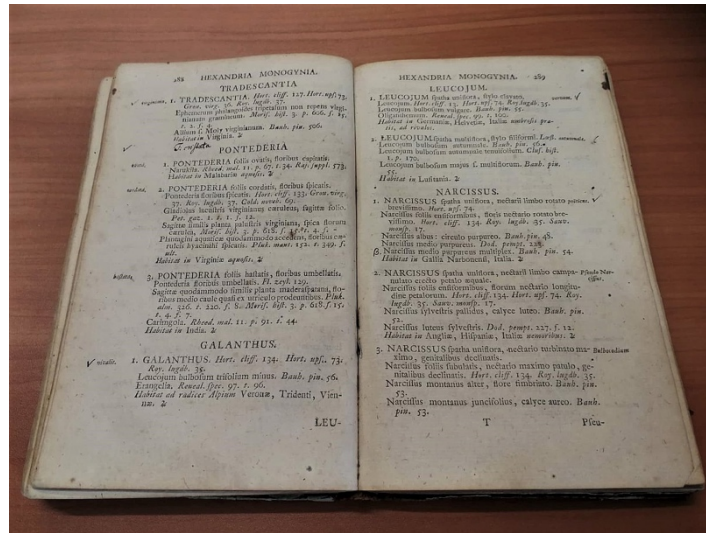 288 HEXANDRIA MONOGYNIA.
TRADESCANTIA
virginiana. 1. TRADESCANTIA. Hort. cliff. 127. Hort. upſ. 73.
Gron. virg. 36. Roy. lugdb. 37.
Ephemerum phalangoides tripetalum non repens virginianum gramineum. Moriſ. hiſt. 3. p. 606. ſ. 15.
t. 2. f. 4.
Allium ſ. Moly virginianum. Bauh. pin. 506.
Habitat in Virginia. ♃
PONTEDERIA
ovata. 1. PONTEDERIA foliis ovatis, floribus capitatis.
Narukila. Rheed. mal. 11. p. 67. t. 34. Raj. ſuppl. 573.
Habitat in Malabariæ aquoſis. ♃
cordata. 2. PONTEDERIA foliis cordatis, floribus ſpicatis.
Pontederia floribus ſpicatis. Hort. cliff. 133. Gron. virg.
37. Roy. lugdb. 37. Cold. noveb. 69.
Gladiolus lacuſtris virginianus cæruleus, ſagittæ folio.
Pet. gaz. 1. t. 1. f. 12.
Sagittæ ſimilis planta paluſtris virginiana, ſpica florum
cærulea. Moriſ. hiſt. 3. p. 618. ſ. 15. t. 4. f.
Plantagini aquaticæ quodammodo accedens, floribus cæ-
ruleis hyacinthi ſpicatis. Pluk. mant. 152. t. 349. f.
ult.
Habitat in Virginiæ aquoſis. ♃
haſtata. 3. PONTEDERIA foliis haſtatis, floribus umbellatis.
Pontederia floribus umbellatis. Fl. zeyl. 129.
Sagittæ quodammodo ſimilis planta maderaſpatana, flo-
ribus medio caule quaſi ex utriculo prodeuntibus. Pluk.
alm. 326. t. 220. f. 8. Moriſ. hiſt. 3. p. 618. ſ. 15.
t. 4. f. 7.
Carimgola. Rheed. mal. 11. p. 91. t. 44.
Habitat in India. ♃
GALANTHUS.
nivalis. 1. GALANTHUS. Hort. cliff. 134. Hort. upſ. 73.
Roy. lugdb. 35.
Leucojum bulboſum trifolium minus. Bauh. pin. 56.
Erangelia. Reneal. ſpec. 97. t. 96.
Habitat ad radices Alpium Veronæ, Tridenti, Vien-
næ. ♃
LEU-
HEXANDRIA MONOGYNIA. 289
LEUCOJUM.
1. LEUCOJUM ſpatha uniflora, ſtylo clavato. vernum.
Leucojum. Hort. cliff. 13. Hort. upſ. 74. Roy. lugdb. 35.
Leucojum bulboſum vulgare. Bauh. pin. 55.
Reneal. ſpec. 99. t. 100.
Habitat in Germaniæ, Helvetiæ, Italiæ umbroſis pra-
tis, ad rivulos.
2. LEUCOJUM ſpatha multiflora, ſtylo filiformi. Loefl. autumnale.
Leucojum bulboſum autumnale. Bauh. pin. 56.
Leucojum bulboſum autumnale tenuifolium. Cluſ. hiſt.
1. p. 170.
Leucojum bulboſum majus ſ. multiflorum. Bauh. pin.
55.
Habitat in Luſitania. ♃
NARCISSUS.
1. NARCISSUS ſpatha uniflora, nectarii limbo rotato poëticus.
breviſſimo. Hort. upſ. 74.
Narciſſus foliis enſiformibus, floris nectario rotato bre-
viſſimo. Hort. cliff. 134. Roy. lugdb. 35. Sauv.
monſp. 17.
Narciſſus albus circulo purpureo. Bauh. pin. 48.
Narciſſus medio purpureus. Dod. pempt. 223.
β. Narciſſus medio purpureus multiplex. Bauh. pin. 54.
Habitat in Gallia Narbonenſi, Italia. ♃
2. NARCISSUS ſpatha uniflora, nectarii limbo campa- Pſeudo Nar-
nulato erecto petalo æquale. ciſſus.
Narciſſus foliis enſiformibus, florum nectario longitu-
dine petalorum. Hort. cliff. 134. Hort. upſ. 74. Roy.
lugdb. 35. Sauv. monſp. 17.
Narciſſus ſylveſtris pallidus, calyce luteo. Bauh. pin.
52.
Narciſſus luteus ſylveſtris. Dod. pempt. 227. f. 12.
Habitat in Angliæ, Hiſpaniæ, Italiæ nemoribus. ♃
3. NARCISSUS ſpatha uniflora, nectario turbinato ma- Bulbocodium
ximo, genitalibus declinatis.
Narciſſus foliis ſubulatis, nectario maximo patulo, ge-
nitalibus declinatis. Hort. cliff. 134. Roy. lugdb. 35.
Narciſſus montanus alter, flore fimbriato. Bauh. pin.
53.
Narciſſus montanus juncifolius, calyce aureo. Bauh.
pin. 53.
T Pſeu-